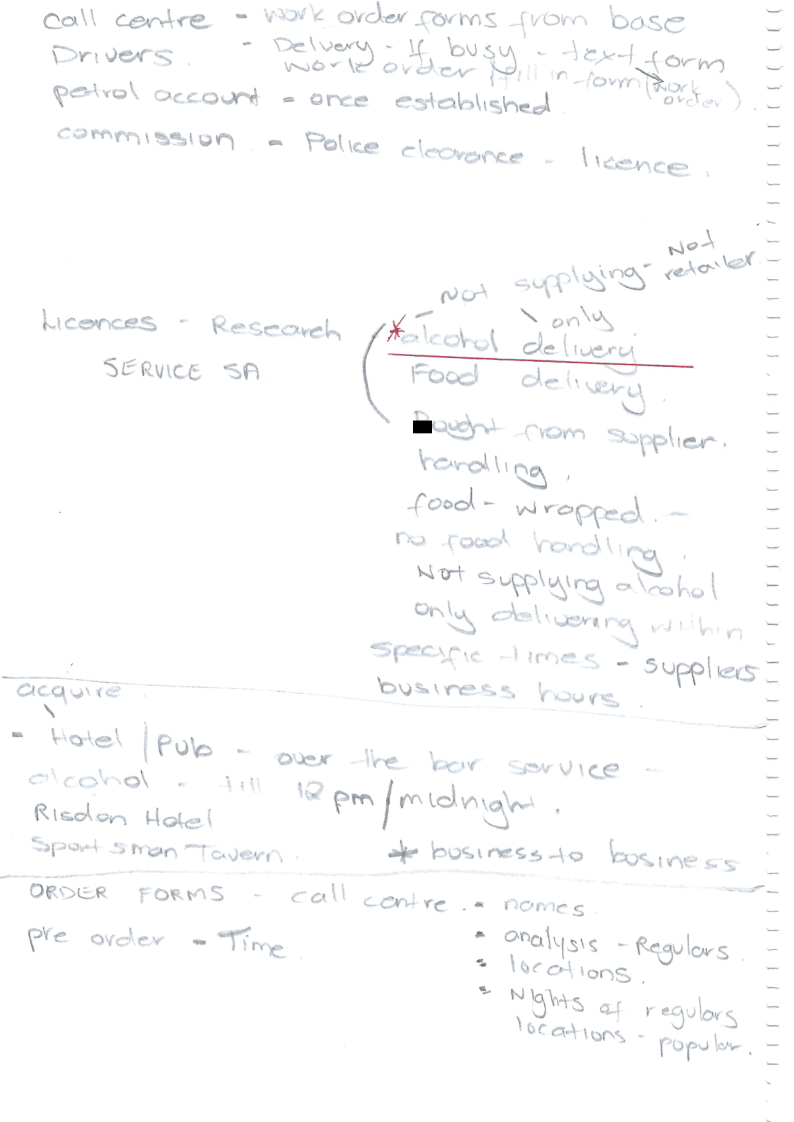 call centre - work order forms from base
Drivers. - Delivery - If busy - text form
work order fill in form (work order)
petrol account - once established.
commission - Police clearance - licence.
Not supplying - Not retailer.
only
Licences - Research
SERVICE SA
*alcohol delivery
Food delivery.
ought from supplier.
handling.
food - wrapped. -
no food handling.
Not supplying alcohol
only delivering within
specific times - suppliers
business hours.
acquire
- Hotel / Pub - over the bar service -
alcohol - till 12 pm / midnight.
Risdon Hotel
Sportsman Tavern.
* business to business
ORDER FORMS - call centre. - names.
pre order - Time.
- analysis - Regulars.
- locations.
- Nights of regulars
locations - popular.